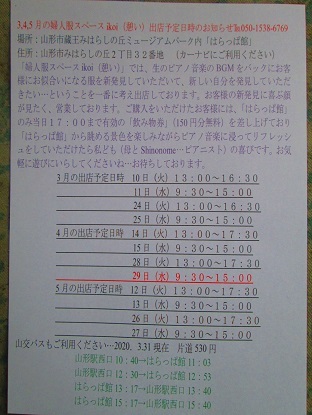 3,4,5 月の婦人服スペース ikoi（憩い）出店予定日時のお知らせ℡050-1538-6769
場所：山形市蔵王みはらしの丘ミュージアムパーク内「はらっぱ館」
住所：山形市みはらしの丘２丁目３２番地　（カーナビにご利用ください）
「婦人服スペース ikoi（憩い）」では、生のピアノ音楽の BGM をバックにお客
様にお似合いになる服を新発見していただいて、新しい自分を発見していただ
きたい…ということを一番に考え出店しております。お客様の新発見に喜ぶ顔
が見たく、営業しております。ご購入をいただけたお客様には、「はらっぱ館」
のみ当日 17：00 まで有効の「飲み物券」(150 円分無料）を差し上げており
「はらっぱ館」から眺める景色を楽しみながらピアノ音楽に浸ってリフレッシ
ュをしていただけたら私ども（母と Shinonome…ピアニスト）の喜びです。お気
軽に遊びにいらしてくださいね…お待ちしております。
３月の出店予定日時　10 日（火）１３：００～１６：３０
11 日（水）９：３０～１５：００
24 日（火）１３：００～１７：３０
25 日（水）９：３０～１５：００
４月の出店予定日時　14 日（火）１３：００～１７：３０
15 日（水）９：３０～１５：００
28 日（火）１３：００～１７：３０
29 日（水）９：３０～１５：００
５月の出店予定日時　12 日（火）１３：００～１７：３０
13 日（水）９：３０～１５：００
26 日（火）１３：００～１７：３０
27 日（水）９：３０～１５：００
山交バスもご利用ください…2020、3.31 現在　片道 530 円
山形駅西口 10：40→はらっぱ館 11：03
山形駅西口 12：30→はらっぱ館 12：53
はらっぱ館 13：17→山形駅西口 13：40
はらっぱ館 15：17→山形駅西口 15：40